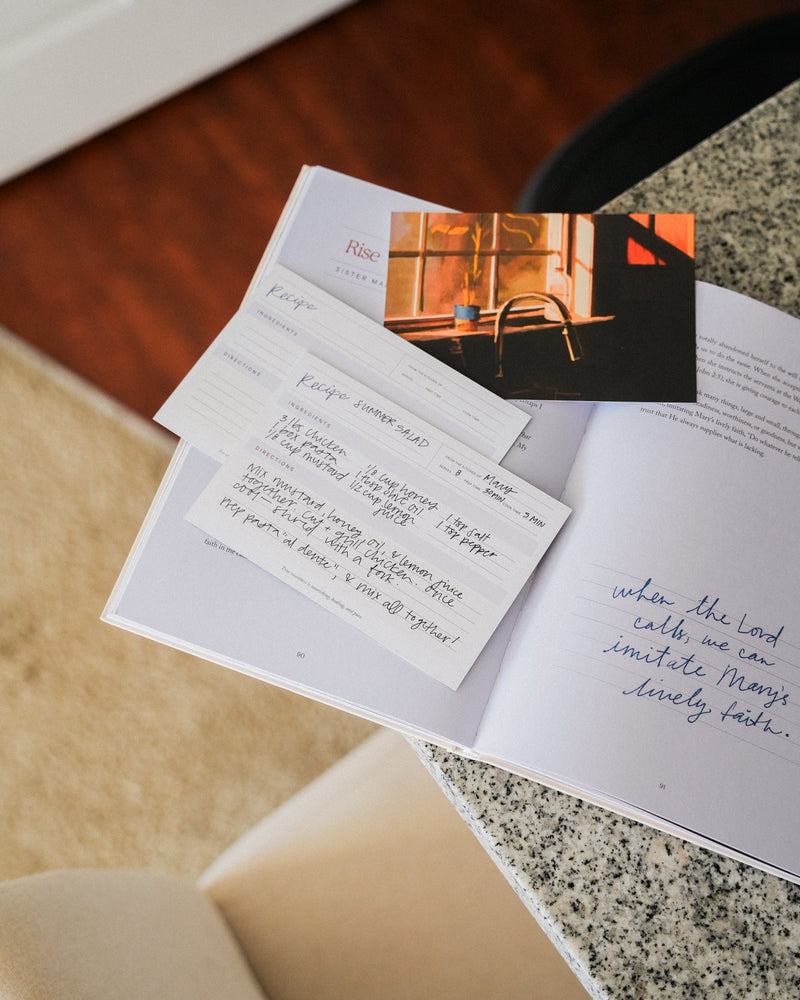 Rise
SISTER MA
Recipe
INGREDIENTS
DIRECTIONS
FROM THE KITCHEN OF
SERVES
PREP TIME
COOK TIME
Recipe SUMMER SALAD
FROM THE KITCHEN OF Mary
SERVES 8 PREP TIME 30 MIN COOK TIME 5 MIN
INGREDIENTS
3 lbs chicken
1 box pasta
1/8 cup mustard
1/8 cup honey
1 tbsp olive oil
1/2 cup lemon
juice
1 tsp salt
1 tsp pepper
DIRECTIONS
Mix mustard, honey, oil, & lemon juice
together. Cut + grill chicken. Once
cool - shred with a fork.
Prep pasta "al dente", & mix all together!
faith in me
90
totally abandoned herself to the will
us to do the same. When she accepte
hen she instructs the servants at the W
John 2:5), she is giving courage to each
k many things, large and small, throug
, imitating Mary's lively faith, "Do whatever he te
trust that He always supplies what is lacking.
when the Lord
calls, we can
imitate Mary's
lively faith.
91